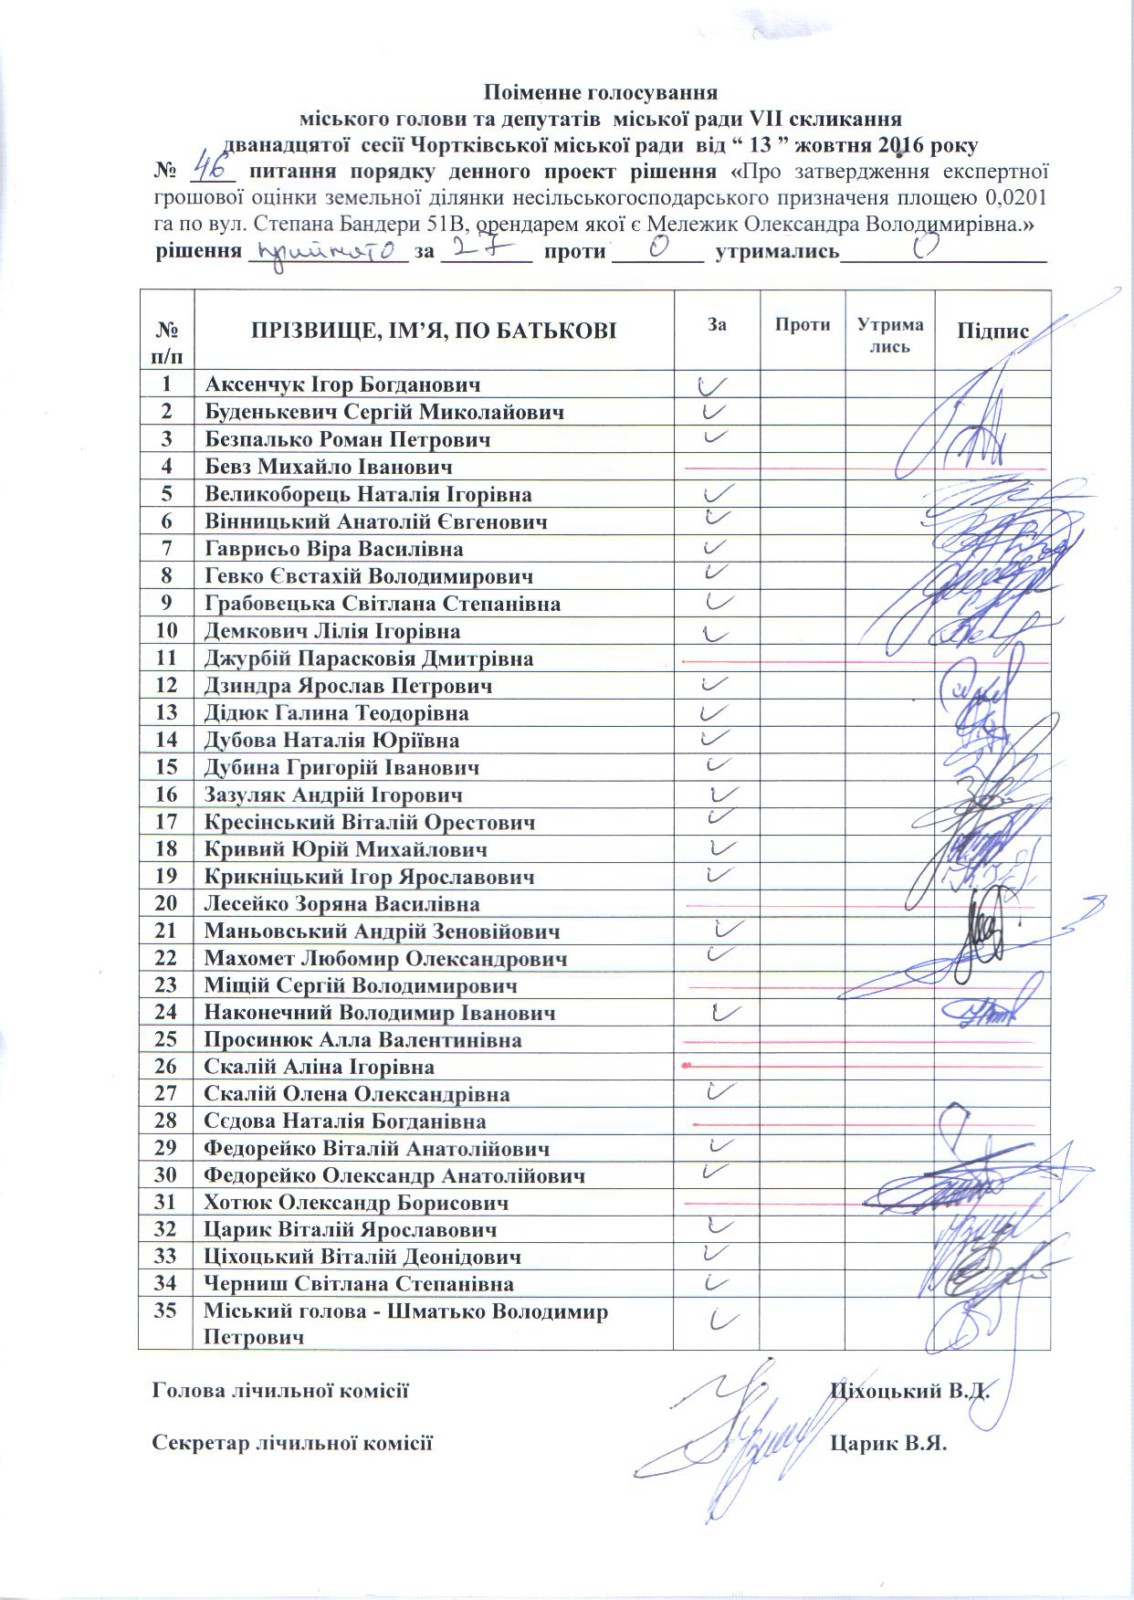 Поіменне голосування
міського голови та депутатів міської ради VII скликання
дванадцятої сесії Чортківської міської ради від “ 13 ” жовтня 2016 року
№ 46 питання порядку денного проект рішення «Про затвердження експертної
грошової оцінки земельної ділянки несільськогосподарського призначеня площею 0,0201
га по вул. Степана Бандери 51В, орендарем якої є Мележик Олександра Володимирівна.»
рішення прийнято за 27 проти 0 утримались 0
№ п/п ПРІЗВИЩЕ, ІМ’Я, ПО БАТЬКОВІ За Проти Утрима лись Підпис
1 Аксенчук Ігор Богданович
2 Буденькевич Сергій Миколайович
3 Безпалько Роман Петрович
4 Бевз Михайло Іванович
5 Великоборець Наталія Ігорівна
6 Вінницький Анатолій Євгенович
7 Гаврисьо Віра Василівна
8 Гевко Євстахій Володимирович
9 Грабовецька Світлана Степанівна
10 Демкович Лілія Ігорівна
11 Джурбій Парасковія Дмитрівна
12 Дзиндра Ярослав Петрович
13 Дідюк Галина Теодорівна
14 Дубова Наталія Юріївна
15 Дубина Григорій Іванович
16 Зазуляк Андрій Ігорович
17 Кресінський Віталій Орестович
18 Кривий Юрій Михайлович
19 Крикніцький Ігор Ярославович
20 Лесейко Зоряна Василівна
21 Маньовський Андрій Зеновійович
22 Махомет Любомир Олександрович
23 Міщій Сергій Володимирович
24 Наконечний Володимир Іванович
25 Просинюк Алла Валентинівна
26 Скалій Аліна Ігорівна
27 Скалій Олена Олександрівна
28 Сєдова Наталія Богданівна
29 Федорейко Віталій Анатолійович
30 Федорейко Олександр Анатолійович
31 Хотюк Олександр Борисович
32 Царик Віталій Ярославович
33 Ціхоцький Віталій Деонідович
34 Черниш Світлана Степанівна
35 Міський голова - Шматько Володимир
Петрович
Голова лічильної комісії Ціхоцький В.Д.
Секретар лічильної комісії Царик В.Я.